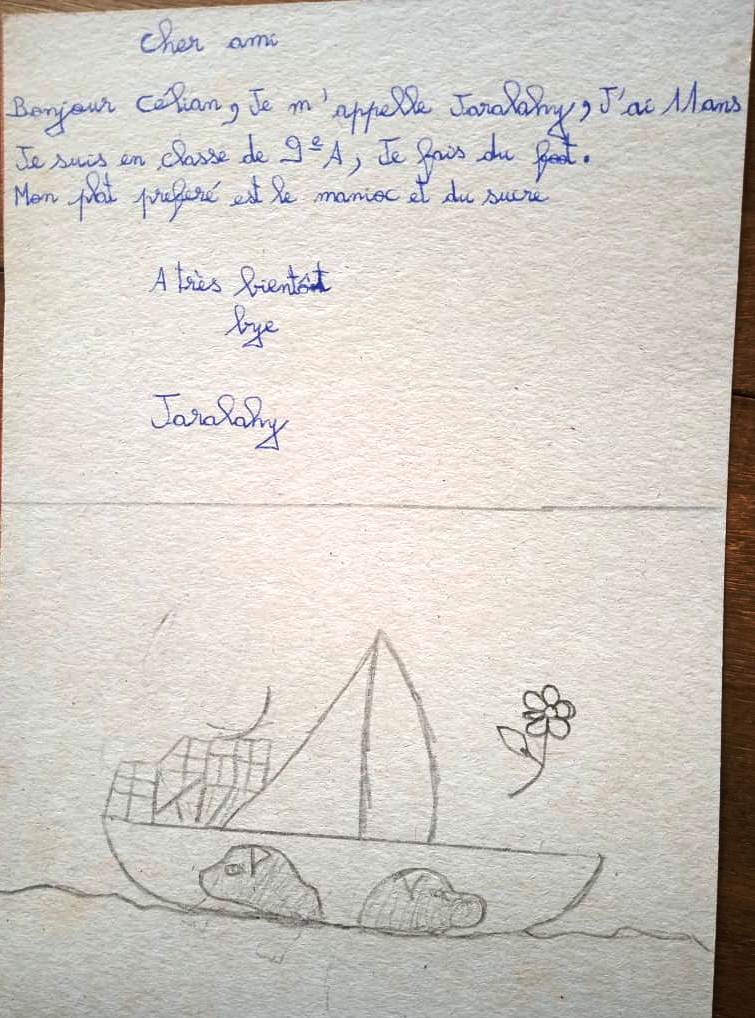 Cher ami
Bonjour Célian, Je m'appelle Jaralahy, J'ai 11ans
Je suis en classe de 9e A, Je fais du foot.
Mon plat preferé est le manioc et du sucre
A très bientôt
bye
Jaralahy